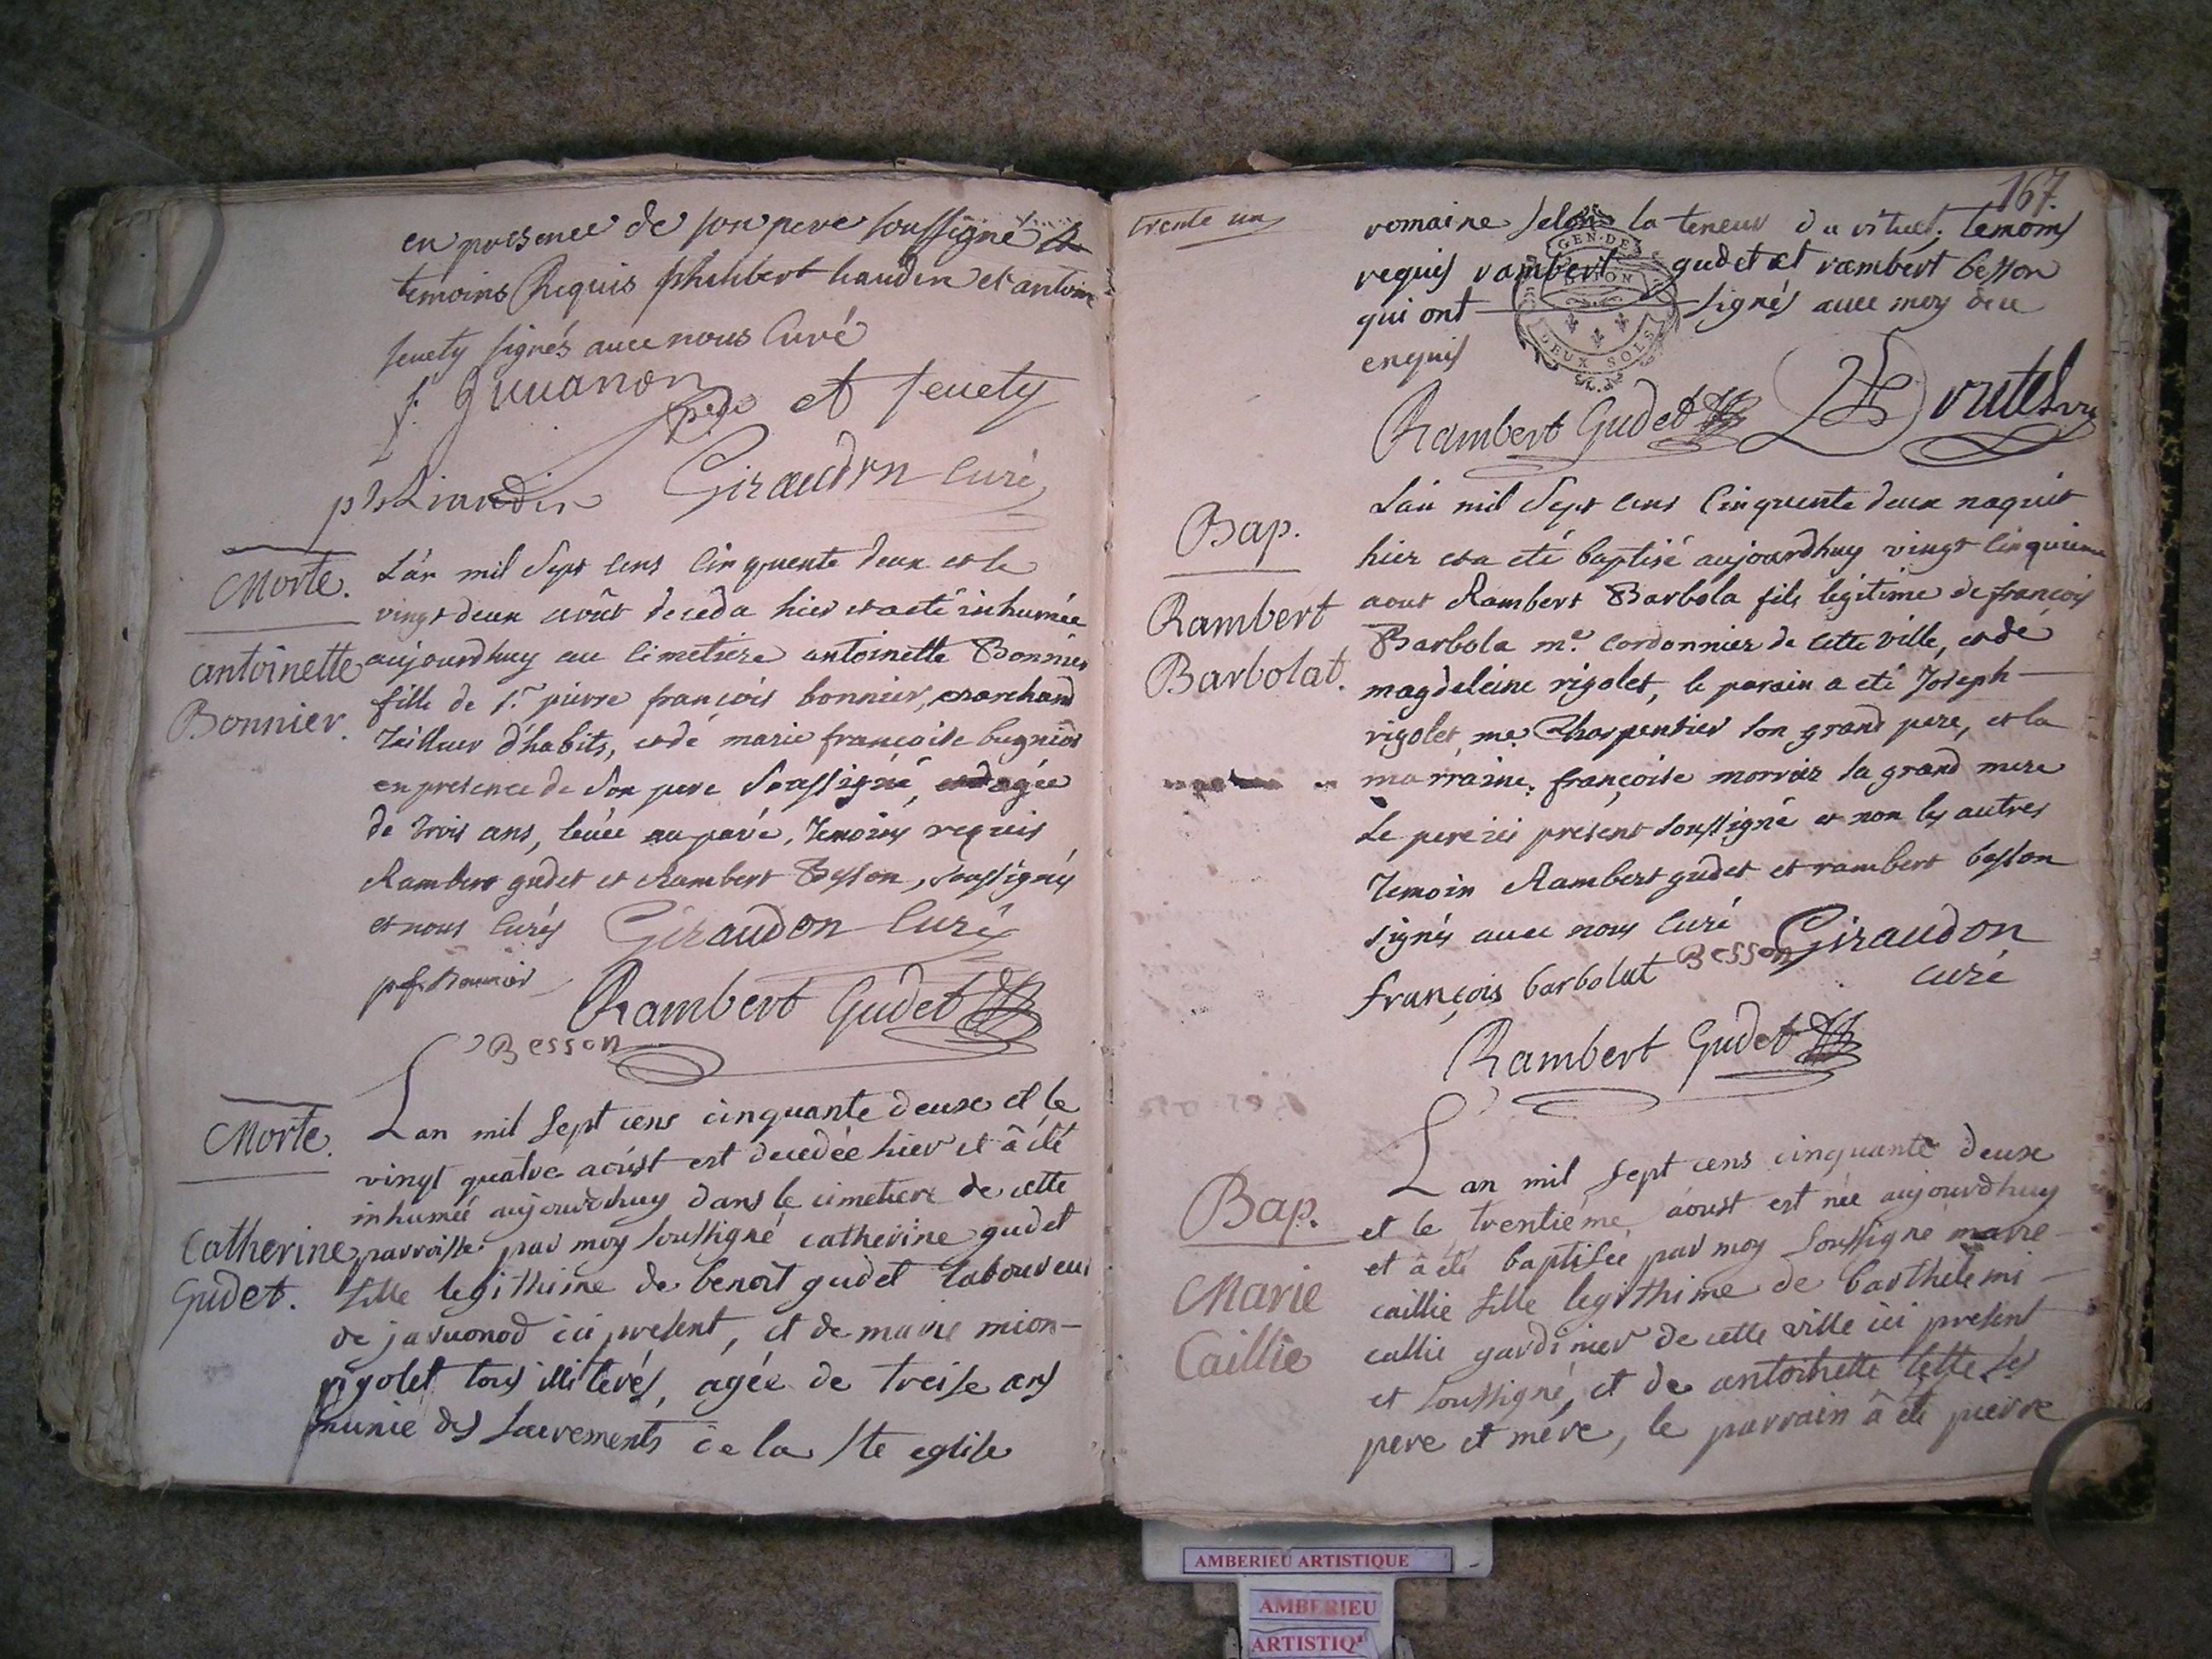 en presence de son pere soussigné
temoins Requis philibert liaudin et antoine
seuety signés avec nous Curé
et seuety
ph Liaudin
Giraudon Curé
Morte.
antoinette
Bonnier.
L'an mil Sept Cens Cinquente deux et le
vingt deux août deceda hier et a eté inhumée
aujourdhuy au Cimetiere antoinette Bonnier
fille de Sr. pierre françois bonnier, marchand
Tailleur d'habits, et de marie françoise bugnion
en presence de Son pere Soussigné, agée
de Trois ans, levée au pavé, Temoins requis
Rambert gudet et Rambert Besson, soussignés
et nous Curés
Giraudon Curé
p f Bonnier
Rambert Gudet
Besson
Morte.
Catherine
Gudet.
Lan mil sept cens cinquante deux et le
vingt quatre aoust est decedée hier et â eté
inhumée aujourdhuy dans le cimetiere de cette
parroisse par moy soussigné catherine gudet
fille legithime de benoit gudet laboureur
de javuonod ici present, et de marie mion-
rigolet tous illiterés, agée de treise ans
munie des sacrements de la ste eglise
167.
trente un
romaine selon la teneur du rituel; temoins
requis rambert gudet et rambert besson
qui ont signés avec moy de ce
enquis
GEN. DE
LYON
DEUX SOLS
Rambert Gudet
Bap.
Rambert
Barbolat.
L'an mil Sept Cens Cinquente deux naquit
hier et a eté baptisé aujourdhuy vingt Cinquieme
aout Rambert Barbola fils legitime de françois
Barbola me. Cordonnier de cette ville, et de
magdeleine rigolet, le parain a eté Joseph
rigolet, me. Charpentier son grand pere, et la
marraine, françoise morrier sa grand mere
Le pere ici present soussigné et non les autres
Temoin Rambert gudet et rambert besson
signés avec nous Curé
Giraudon
curé
Besson
françois barbolat
Rambert Gudet
Bap.
Marie
Caillie
Lan mil sept cens cinquante deux
et le trentiéme aoust est née aujourdhuy
et â eté baptisée par moy soussigné marie
caillie fille legithime de barthelemi
callie gardinier de cette ville ici present
et soussigné, et de antoinette lette ses
pere et mére, le parrain â eté pierre
AMBERIEU ARTISTIQUE
AMBERIEU
ARTISTIQ